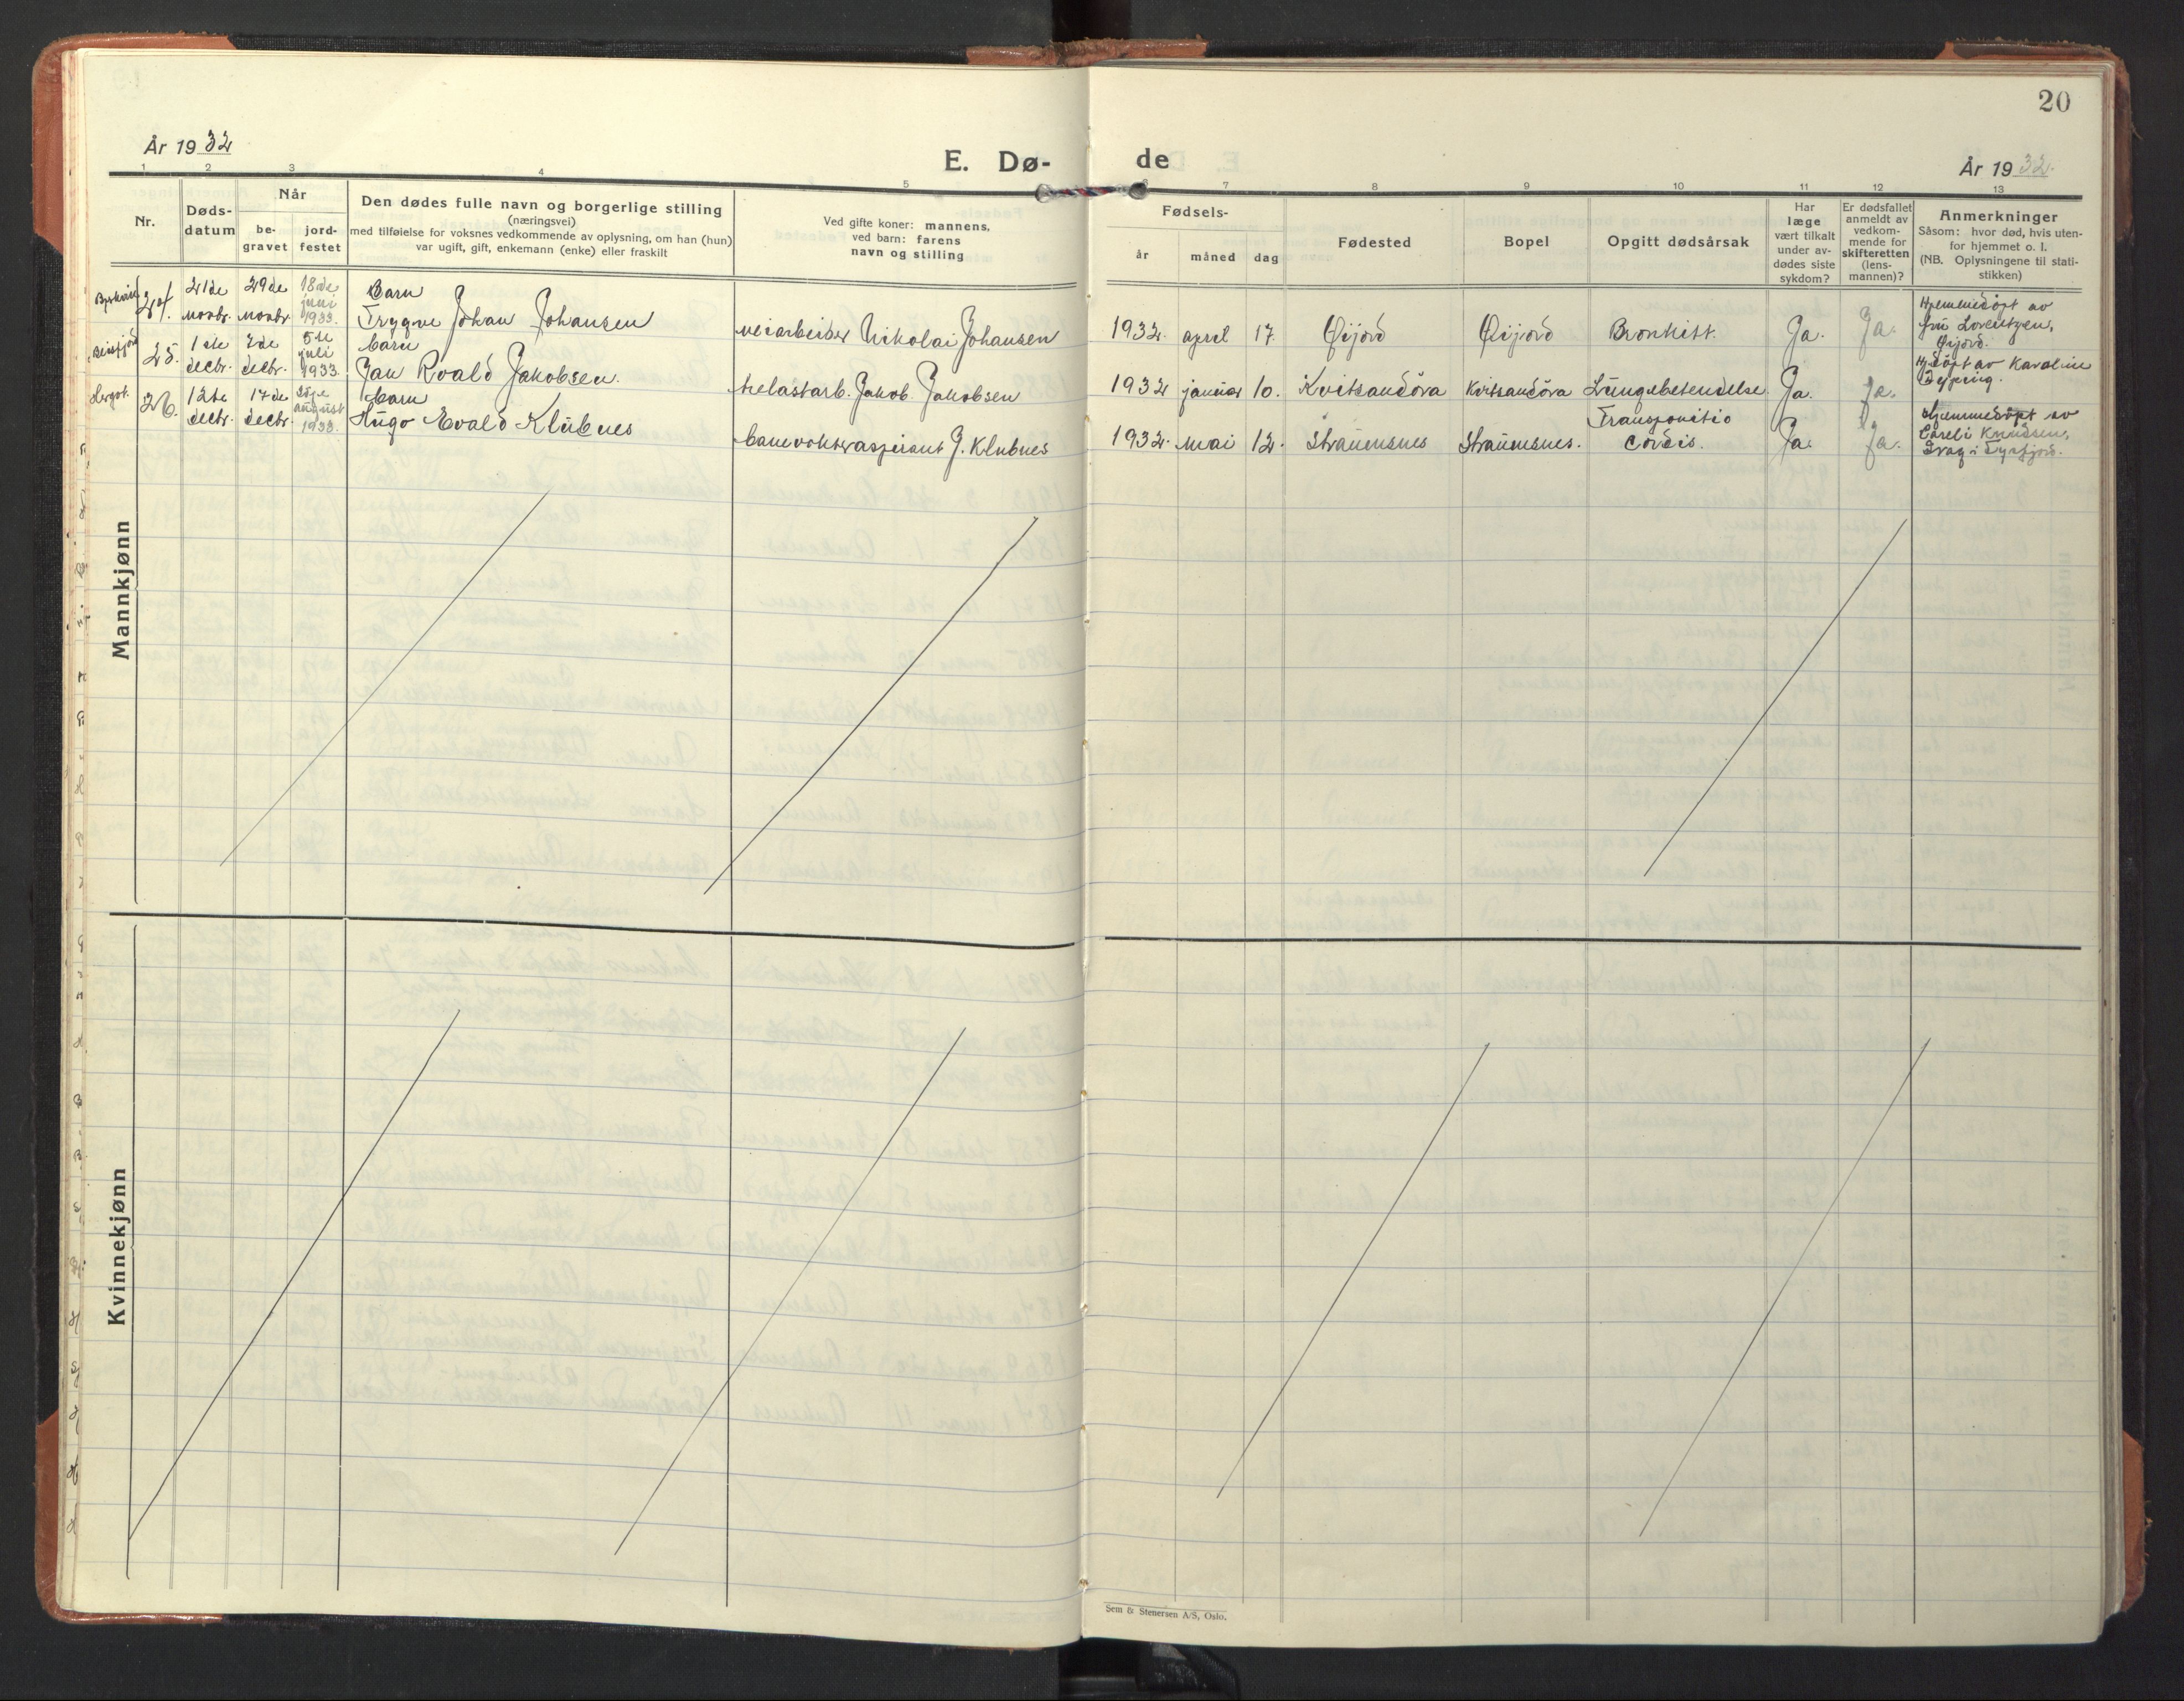 20
År 1932
E. Dø-
de
År 1932.
1 2 3 4 5 6 7 8 9 10 11 12 13
Nr.
Døds-
datum
Når
be-
gravet
jord-
festet
Den dødes fulle navn og borgerlige stilling
(næringsvei)
med tilføielse for voksnes vedkommende av oplysning, om han (hun)
var ugift, gift, enkemann (enke) eller fraskilt
Ved gifte koner: mannens,
ved barn: farens
navn og stilling
Fødsels-
år
måned
dag
Fødested
Bopel
Opgitt dødsårsak
Har
læge
vært tilkalt
under av-
dødes siste
sykdom?
Er dødsfallet
anmeldt av
vedkom-
mende for
skifteretten
(lens-
mannen)?
Anmerkninger
Såsom: hvor død, hvis uten-
for hjemmet o. l.
(NB. Oplysningene til stati-
stikken)
Mannkjønn
24. 21de novbr. 29de novbr. 18de juni 1933.
Barn
Trygve Johan Johansen
veiarbeider Nikolai Johansen
1932. april 17. Øijord Øijord Bronkitt. Ja. Ja.
Hjemmedöpt av
fru Lorentzen,
Øijord.
Beisfjord 25. 1ste decbr. 7de decbr. 5te juli 1933.
barn
Jan Roald Jakobsen.
Jakob Jakobsen
1932 januar 10. Kvitsandöra Kvitsandöra Lungebetendelse Ja. Ja.
Hj.döpt av Karoline
26. 12te decbr. 17de decbr. august 1933.
barn
Hugo Evald Klubnes
banevokteraspirant J. Klubnes
1932. mai 12. Straumsnes Straumsnes.
Transpositio
cordis.
Ja. Ja.
Hjemmedöpt av
Knudsen,
Drag i Tysfjord.
Kvinnekjønn
Sem & Stenersen A/S, Oslo.